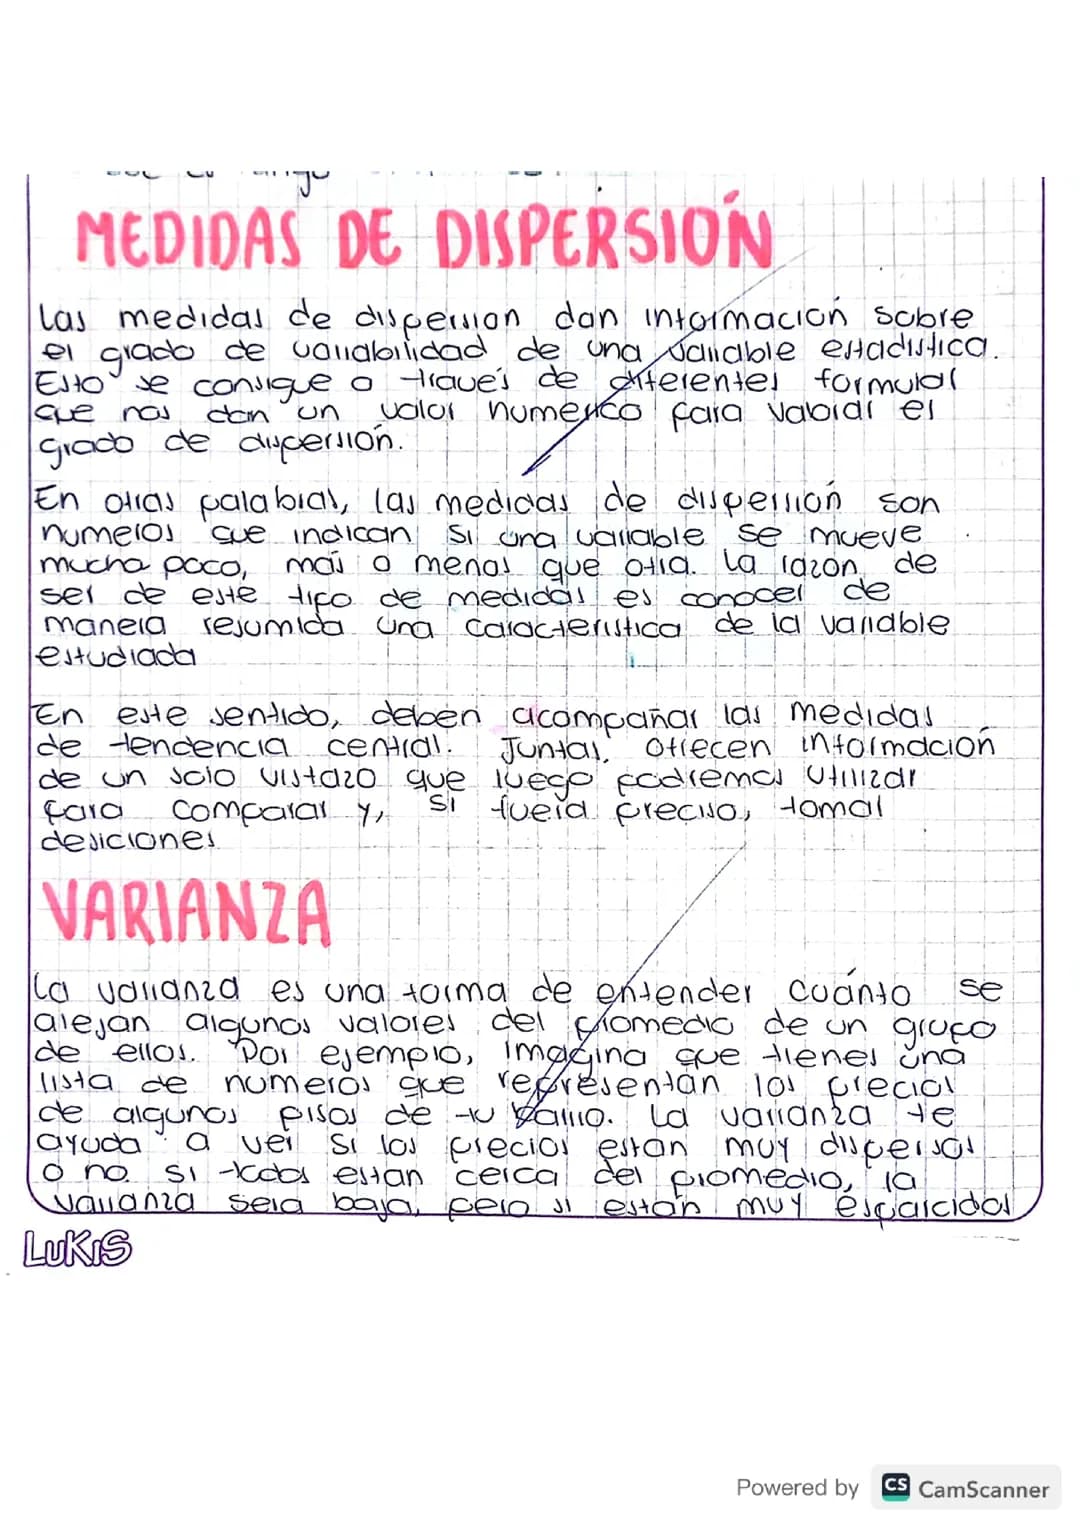 MEDIDAS DE DISPERSIÓN
Las medidas de dispersion dan información sobre
el grado de variabilidad de una variable estadistica.
Esto se consigue a través de diferentes formulas
que nos dan un valor numerico para el
grado de dispersión.
En otras palabras, las medidas de dispersión son
numeros que indican si una variable se mueve
mucho poco, más o menos que otra. La razon de
ser de este tipo de medidas es conocer de
manera resumida una caracteristica de la variable
estudiada
En este sentido, deben acompañar las medidas
de tendencia central. Juntas, ofrecen información
de un solo vistazo que luego podremos utilizar
para comparar y, si fuera preciso, tomar
desiciones
VARIANZA
La varianza es una forma de entender cuánto se
alejan algunos valores del promedio de un grupo
de ellos. Por ejemplo, imagina que tienes una
lista de numeros que representan los precios
de algunos pisos de tu barrio. La varianza te
ayuda a ver si los precios estan muy dispersos
o no. si todos estan cerca del promedio, la
varianza sera baja, pero si están muy esparcidos
LUKIS
Powered by CS CamScanner